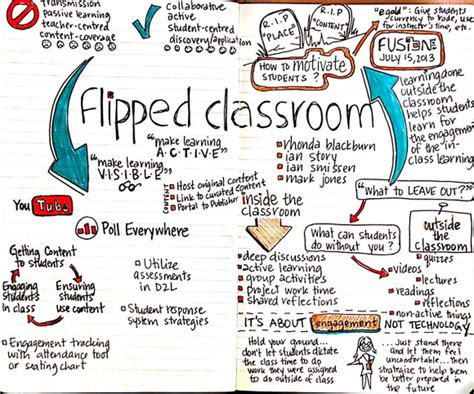 transmission
passive learning
teacher-centred
content-coverage
collaborative
active
student-centred
discovery/application
R.I.P
"PLACE"
R.I.P
"CONTENT"
HOW TO motivate
STUDENTS?
"egold": Give students
currency to trade, use
for instructor's time, etc.
FUSION
JULY 15, 2013
learning done
outside the
classroom
helps students
learn for
the engagement
of the in-
class learning
Flipped classroom
"make learning
A·C·T·I·V·E"
"make learning
V·I·S·I·B·L·E"
rhonda blackburn
ian story
ian smissen
mark jones
CONTENT
Host original content
Link to curated content
Portal to Publisher
"What to LEAVE OUT?"
You Tube
Poll Everywhere
inside the
classroom
What can students
do without you?
outside
the
classroom
Getting Content
to students
Engaging
Students
in class
Ensuring
students
use content
Utilize
assessments
in D2L
Student response
system strategies
Engagement tracking
with attendance tool
or seating chart
deep discussions
active learning
group activities
Project work time
Shared reflections
quizzes
videos
lectures
readings
reflections
non-active things
IT'S ABOUT engagement NOT TECHNOLOGY
Hold your ground...
don't let students dictate
the class time to do
work they were assigned
to do outside of class
...Just stand there
and let them feel
uncomfortable...then
strategize to help them
be better prepared in
the future